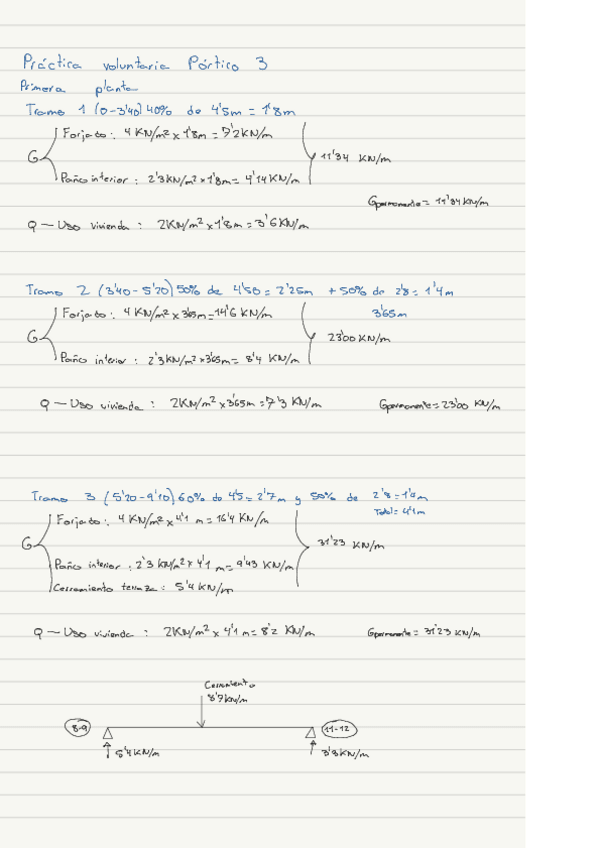 Práctica voluntaria Pórtico 3
Primera planta
Tramo 1 (0-3'40) 40% de 4'5m = 1'8m
Forjado: 4 KN/m² x 1'8m = 7'2 KN/m
G
11'34 KN/m
Paño interior: 2'3 KN/m² x 1'8m = 4'14 KN/m
Gpermanente = 11'34 KN/m
Q — Uso vivienda: 2KN/m² x 1'8m = 3'6 KN/m
Tramo 2 (3'40-5'20) 50% de 4'50 = 2'25m + 50% de 2'8 = 1'4m
Forjado: 4 KN/m² x 3'65m = 14'6 KN/m
3'65m
G
23'00 KN/m
Paño interior: 2'3 KN/m² x 3'65m = 8'4 KN/m
Q — Uso vivienda: 2KN/m² x 3'65m = 7'3 KN/m
Gpermanente = 23'00 KN/m
Tramo 3 (5'20-9'10) 60% de 4'5 = 2'7m y 50% de 2'8 = 1'4m
Total = 4'1m
Forjado: 4 KN/m² x 4'1 m = 16'4 KN/m
G
31'23 KN/m
Paño interior: 2'3 KN/m² x 4'1 m = 9'43 KN/m
Cerramiento terraza: 5'4 KN/m
Q — Uso vivienda: 2KN/m² x 4'1m = 8'2 KN/m
Gpermanente = 31'23 KN/m
Cerramiento
8'7 KN/m
8-9
11-12
5'4 KN/m
3'3 KN/m